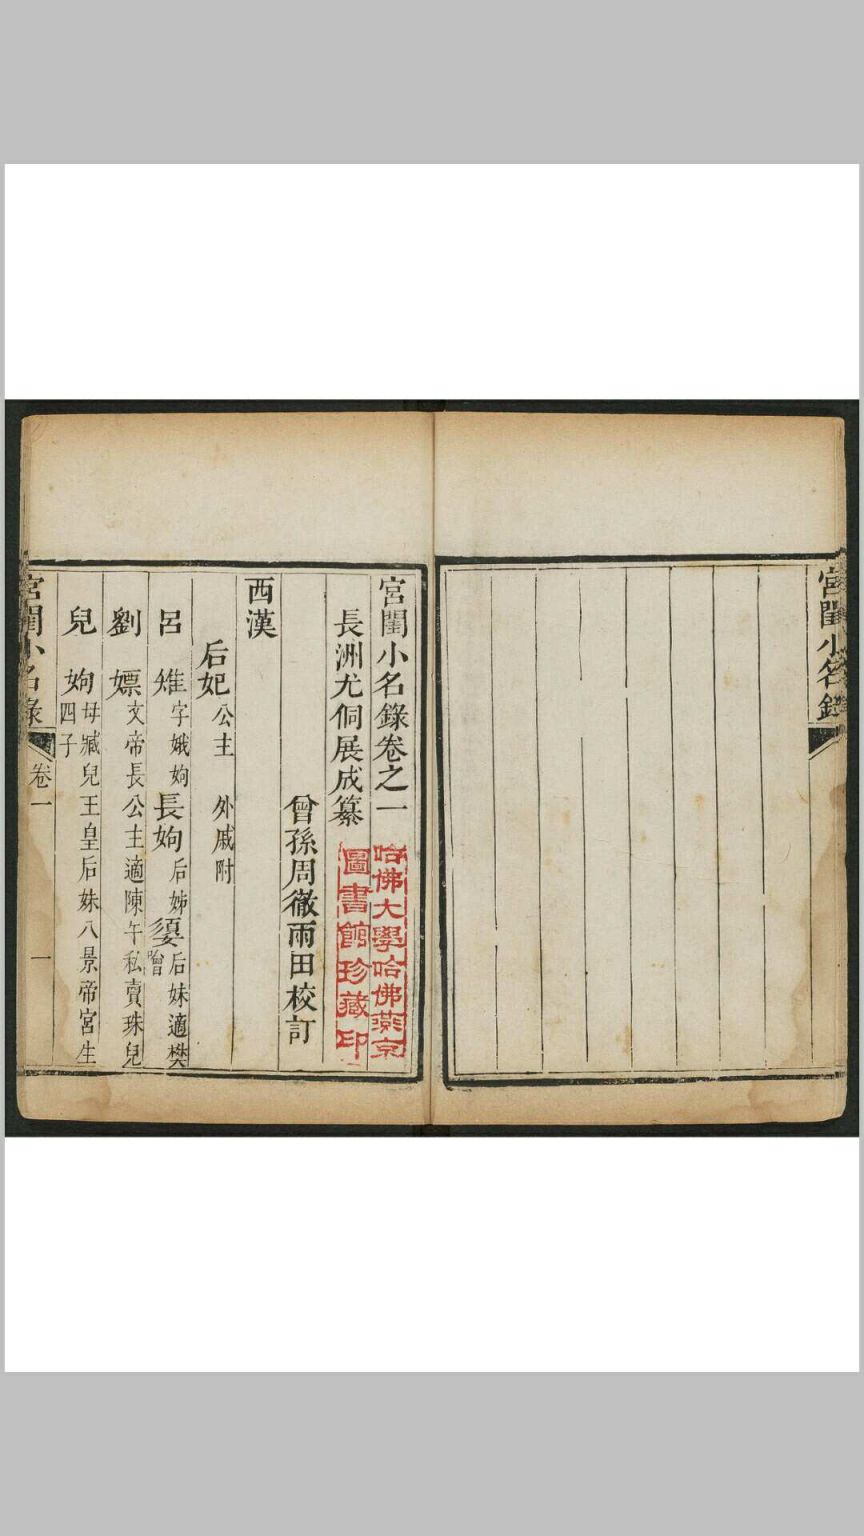 宮閨小名錄
宮閨小名錄卷之一
長洲尤侗展成纂
曾孫周徹雨田校訂
哈佛大學哈佛燕京
圖書館珍藏印
西漢
后妃 公主 外戚附
呂 雉 字娥姁 長姁 后姊 嬃 后妹適樊噲
劉 嫖 文帝長公主適陳午私賣珠兒
兒 姁 母臧兒王皇后妹入景帝宮生四子
宮閨小名錄 卷一 一